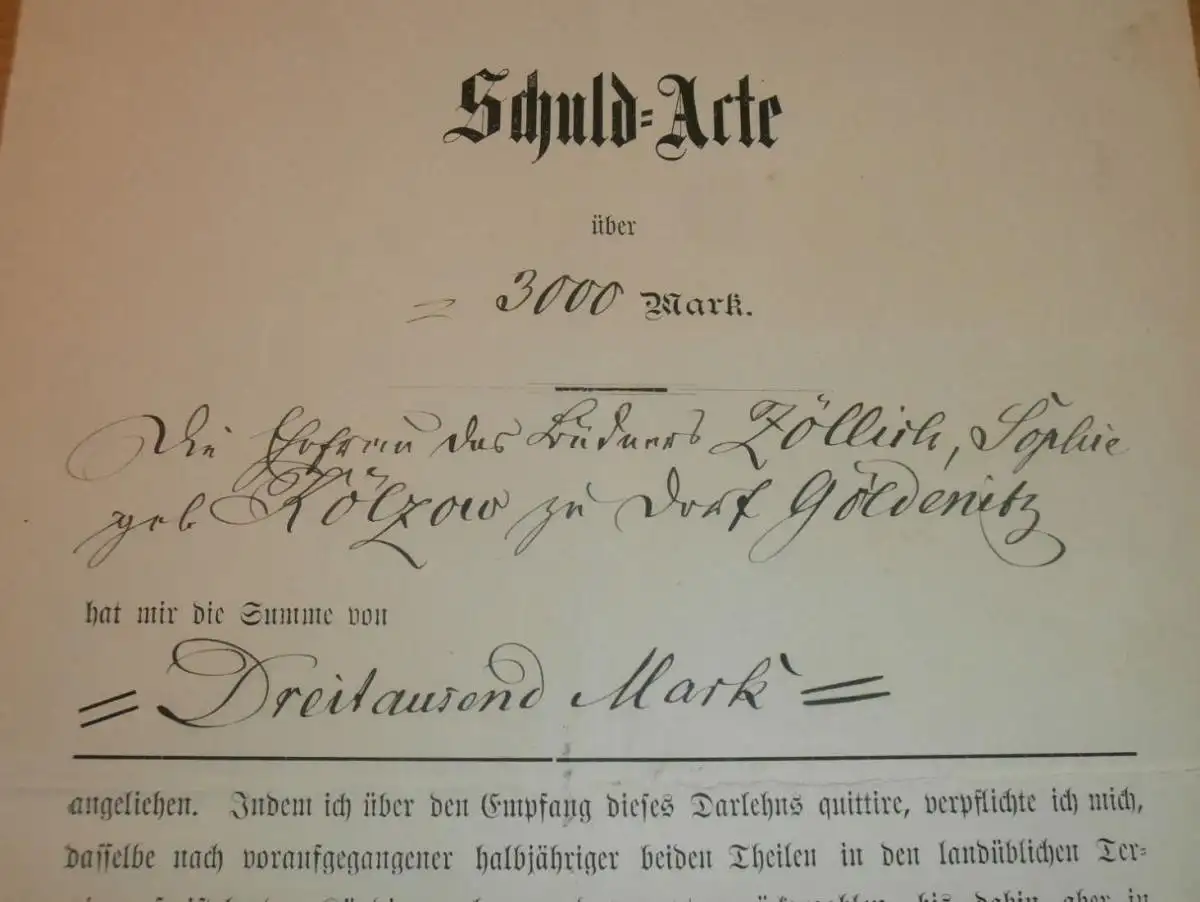 Schuld=Acte
über
= 3000 Mark.
Die Ehefrau des Büdners Zöllich, Sophie
geb Kölzow zu Dorf Göldenitz
hat mir die Summe von
= Dreitausend Mark =
angeliehen. Indem ich über den Empfang dieses Darlehns quittire, verpflichte ich mich,
dasselbe nach voraufgegangener halbjähriger beiden Theilen in den landüblichen Ter=
bis dahin aber in